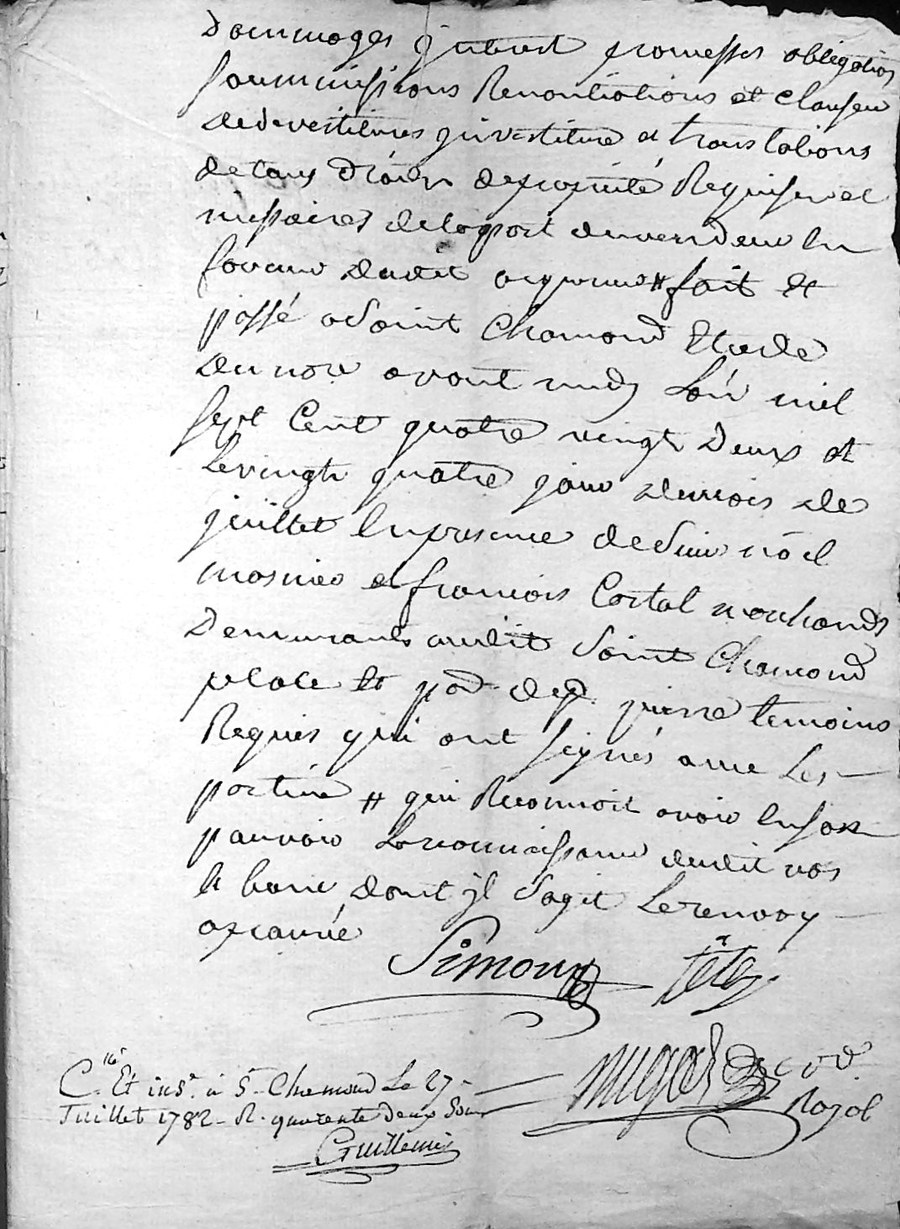 Dommages jnterest promesses obligations
soummissions Renontiations et clauses
de devestitures jnvestiture et translations
de tous droits de proprieté Requises et
nessaires de la part du vendeur en
faveur dudit acquereur # fait et
passé a Saint Chamond Etude
du nore avant midy L'an mil
sept Cent quatre vingt Deux et
Le vingt quatre jour du mois de
juillet En presence de Sieur noel
mosnier et francois Cortal marchands
Demeurants audit Saint Chamond
place St pierre temoins
Requis qui ont signés avec Les
parties # qui Reconnoit avoir En son
pouvoir La reconnaissance dudit
banc dont jl S'agit Le renvoy
aprouvé
Simon tête
C.lé Et ins.é à St Chamond Le 27
Juillet 1782 - R. quarente deux Sous
Guillemin
Royal